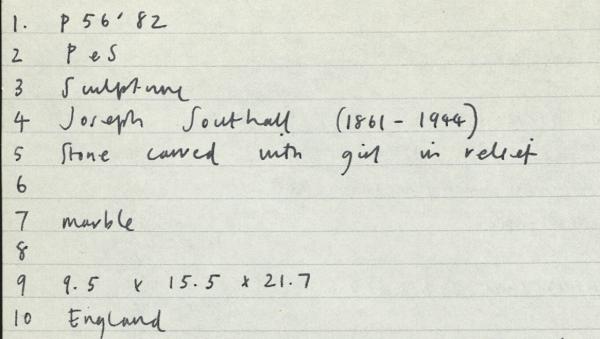 1. P 56'82
2 P e S
3 Sculpture
4 Joseph Southall (1861 - 1944)
5 Stone carved with girl in relief
6
7 marble
8
9 9.5 x 15.5 x 21.7
10 England